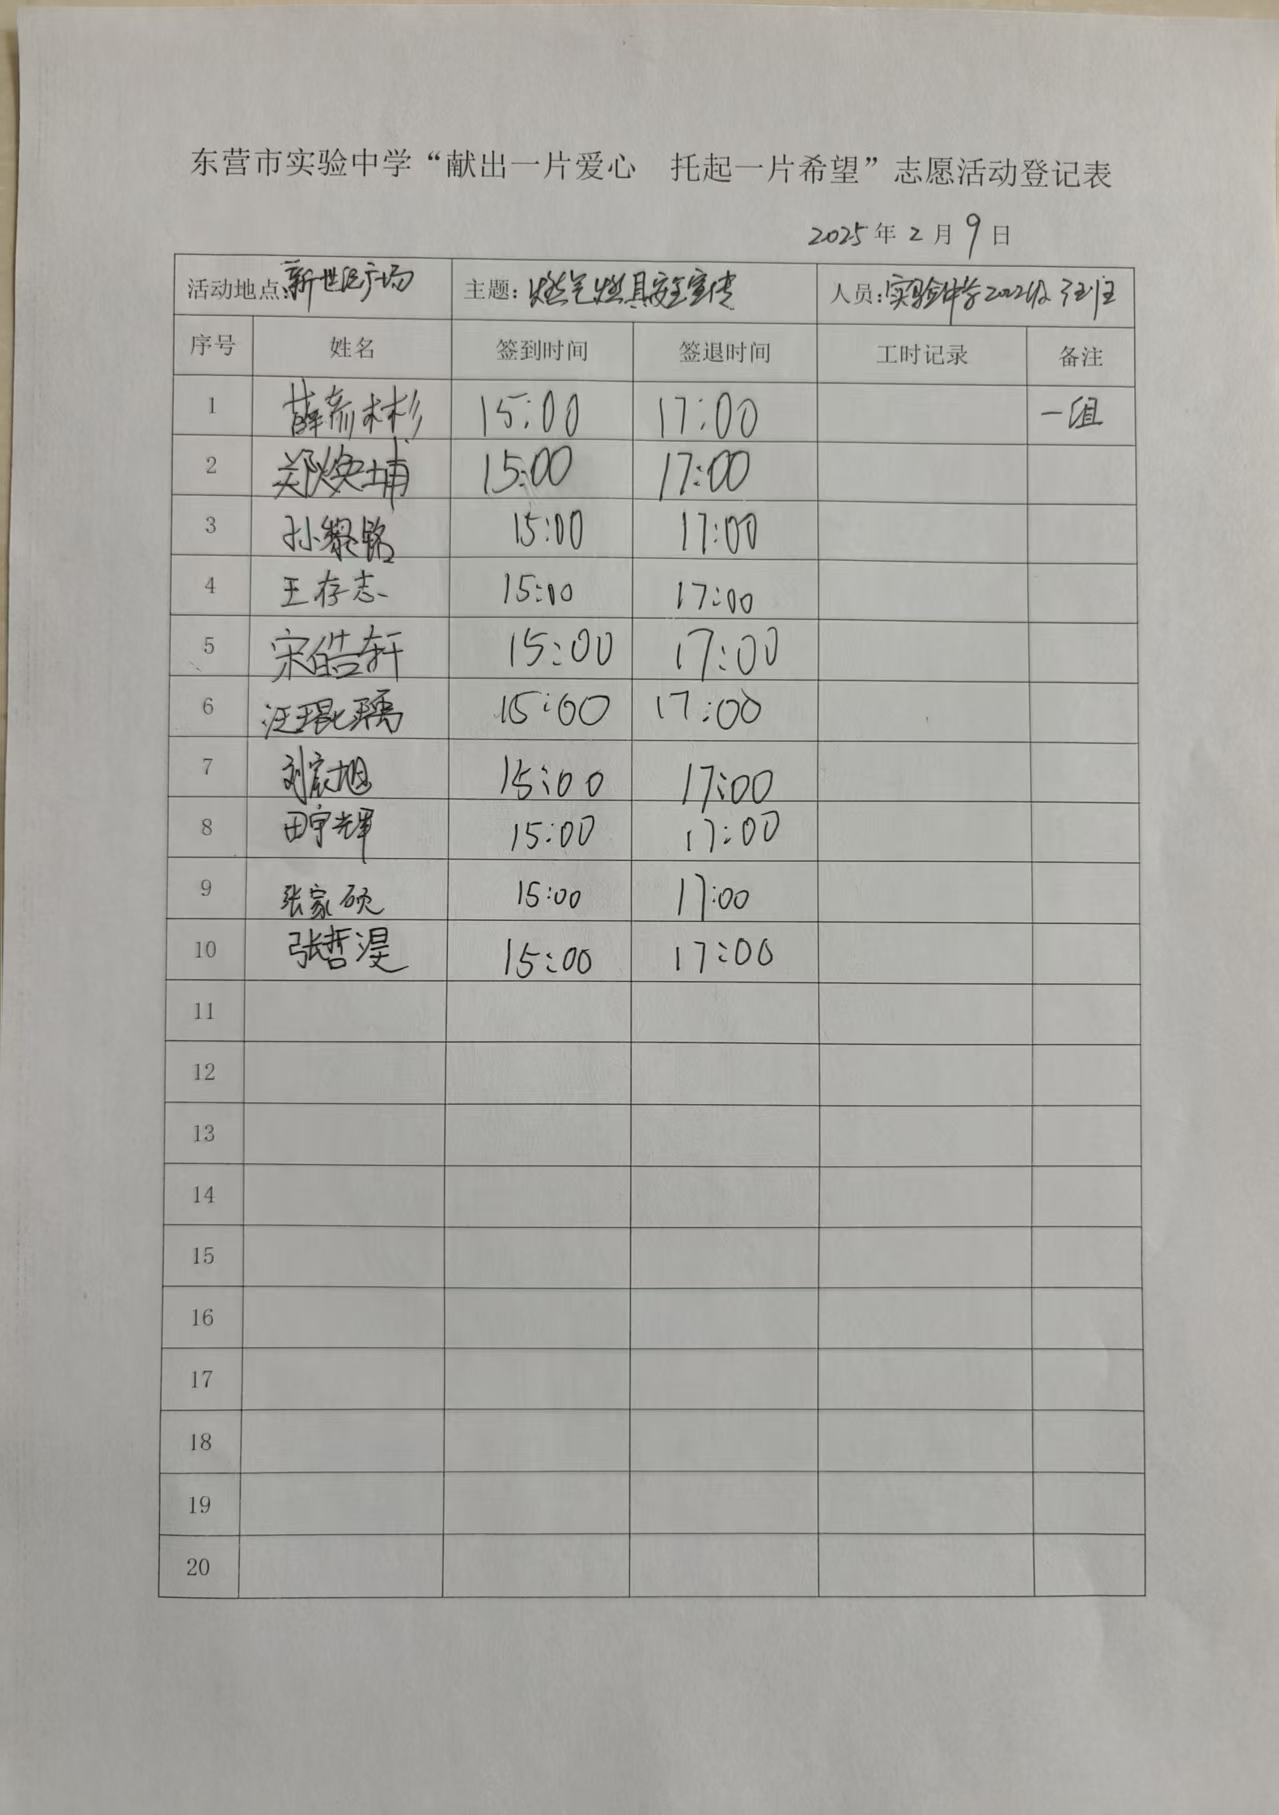 东营市实验中学“献出一片爱心 托起一片希望”志愿活动登记表
2025年2月9日
活动地点:新世纪广场 主题:燃气燃具安全宣传 人员:实验中学2022级汪班
序号 姓名 签到时间 签退时间 工时记录 备注
1 薛彦彬 15:00 17:00 一组
2 郑焕埔 15:00 17:00
3 孙铭 15:00 17:00
4 王存志 15:00 17:00
5 宋皓轩 15:00 17:00
6 汪琨瑀 15:00 17:00
7 刘宸旭 15:00 17:00
8 田宇辉 15:00 17:00
9 张家硕 15:00 17:00
10 张哲浥 15:00 17:00
11
12
13
14
15
16
17
18
19
20